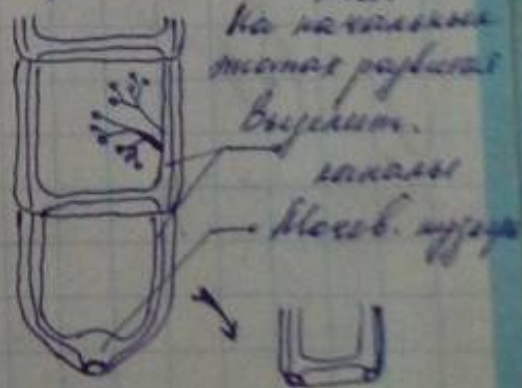 На начальных
этапах развития
Выделит.
каналы
Мочев. пузырь